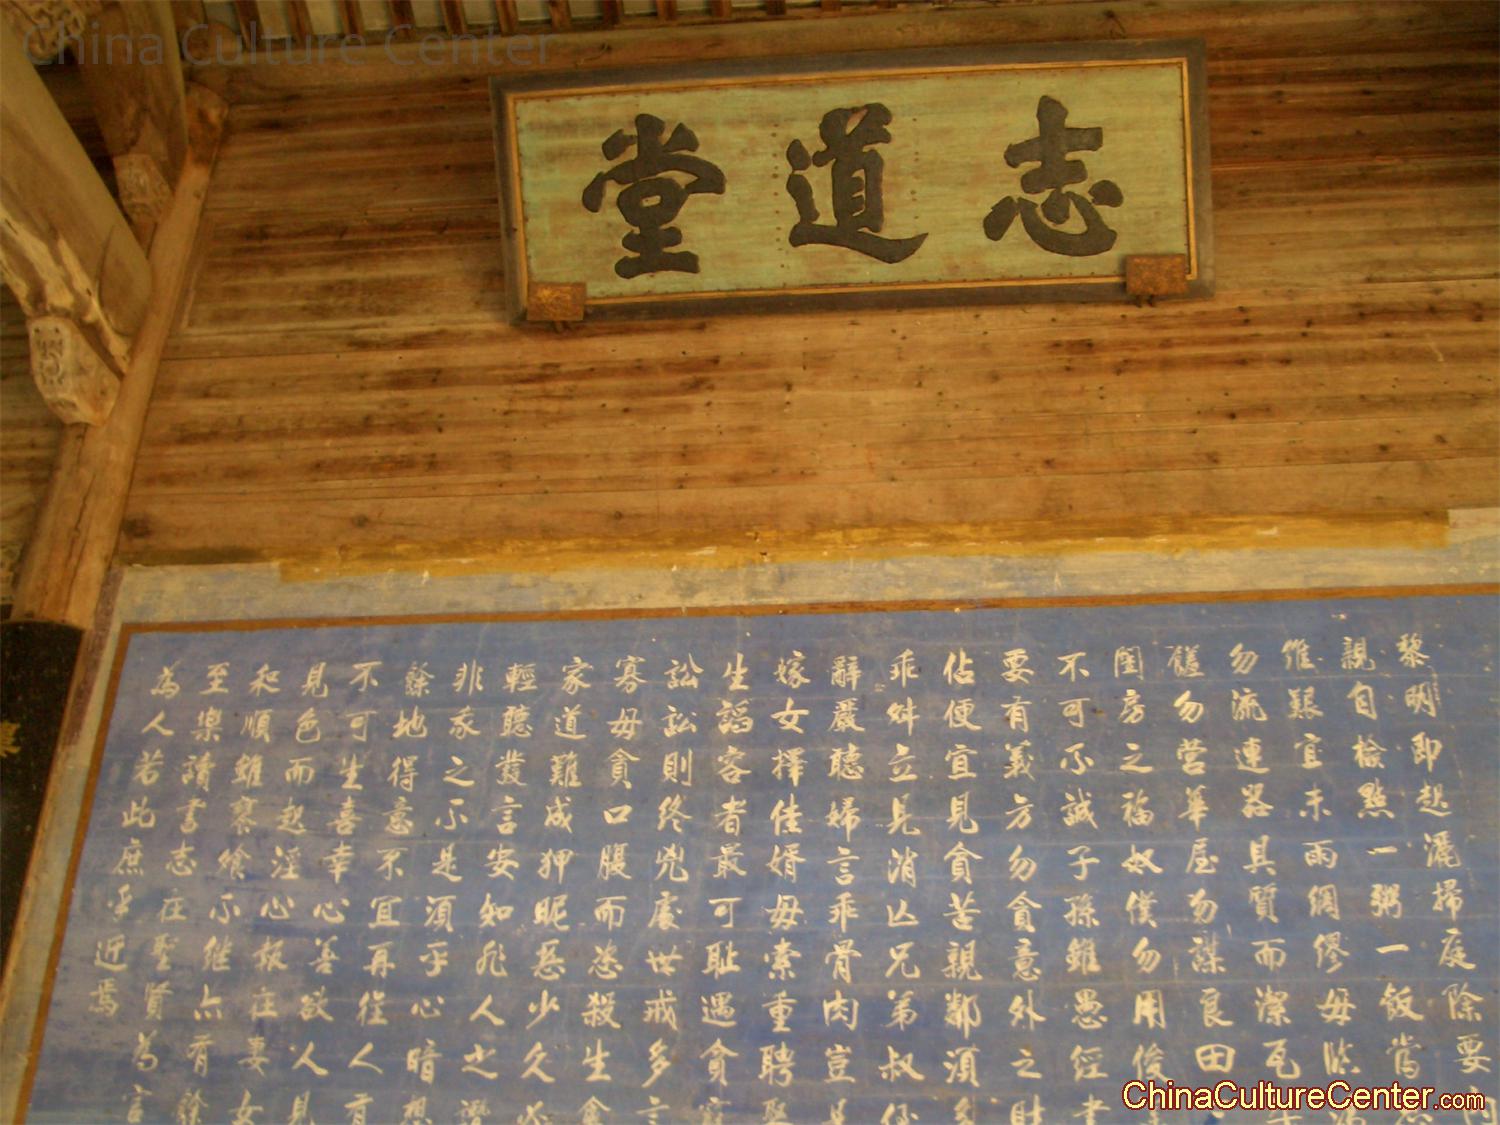 志道堂
黎明即起灑掃庭除要
親自檢點一粥一飯當
維艱宜未雨綢繆毋臨
勿流連器具質而潔瓦
饈勿營華屋勿謀良田
閨房之福奴僕勿用俊
不可不誠子孫雖愚經書
要有義方勿貪意外之財
佔便宜見貪苦親鄰須多
乖舛立見消亡兄弟叔侄
辭嚴聽婦言乖骨肉豈是
嫁女擇佳婿毋索重聘
生諂容者最可恥遇貪窮
訟訟則終兇處世戒多言
寡毋貪口腹而恣殺生禽
家道難成狎昵惡少久必
輕聽發言安知非人之譖
非我之不是須平心暗想
餘地得意不宜再往人有
不可生喜幸心善欲人見
見色而起淫心報在妻女
和順雖饔飧不繼亦有餘
至樂讀書志在聖賢為官
為人若此庶乎近焉
China Culture Center
ChinaCultureCenter.com